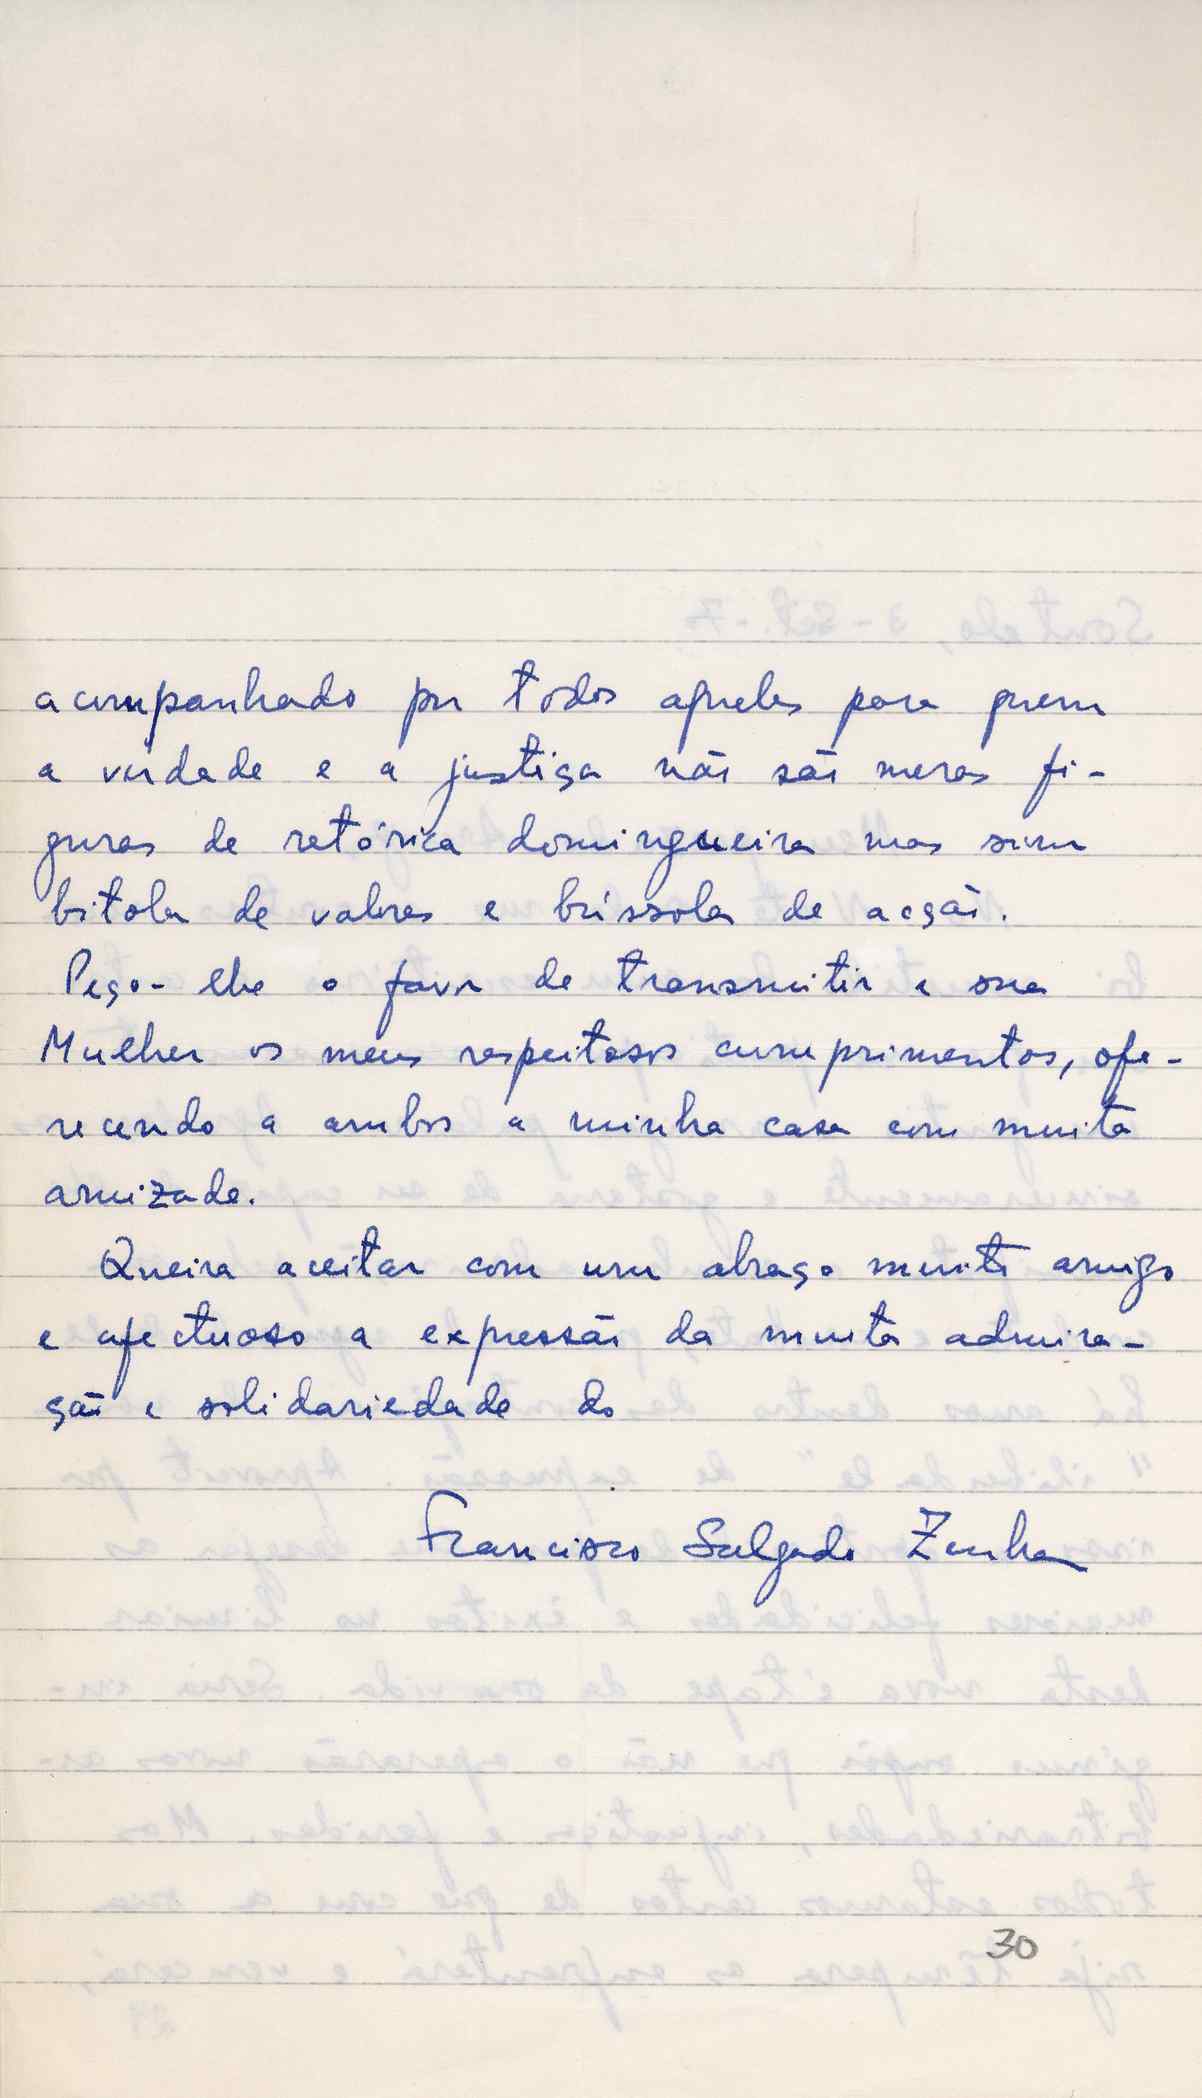 acompanhado por todos aqueles para quem
a verdade e a justiça não são meras fi-
guras de retórica domingueira mas sim
bitola de valores e bússola de acção.
Peço-lhe o favor de transmitir a sua
Mulher os meus respeitosos cumprimentos, ofe-
recendo a ambos a minha casa com muita
amizade.
Queira aceitar com um abraço muito amigo
e afectuoso a expressão da muita admira-
ção e solidariedade do
Francisco Salgado Zenha
30